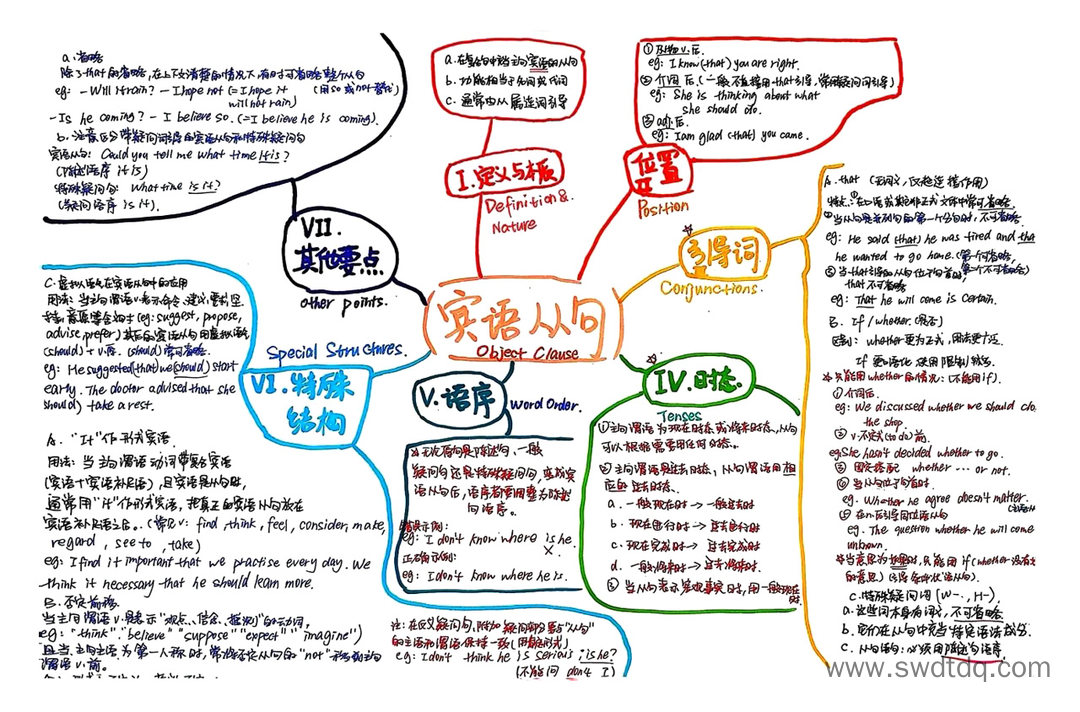 宾语从句
Object Clause
I.定义与本质
Definition &
Nature
a.在复合句中作主句宾语的从句
b.功能相当于名词或代词
c.通常由从属连词引导
位置
II
Position
①及物v.后
eg: I know (that) you are right.
②介词后(一般不直接用that引导,常用疑问词引导)
eg: She is thinking about what
she should do.
③adj.后
eg: I am glad (that) you came.
引导词
Conjunctions.
A. that
eg: He said (that) he was tired and that
he wanted to go home.
that 不可省略
eg: That he will come is certain.
B. If/whether (是否)
区别: whether更为正式,用法更广泛
①介词后
eg: We discussed whether we should do
the shop.
②v.不定式(to do)前
eg: She hasn't decided whether to go.
③固定搭配 whether ... or not.
④当从句位于句首时
eg. Whether he agree doesn't matter.
eg. The question whether he will come
unknown.
C.特殊疑问词 (W-., H-)
a.这些词本身有词义,不可省略
b.它们在从句中充当特定语法成分.
c.从句语句:必须用陈述句语序.
IV.时态
Tenses
①主句谓语为现在时态或将来时态,从句
可以根据需要用任何时态.
②主句谓语是过去时态,从句谓语用相
应的过去时态.
a.一般现在时→一般过去时
b.现在进行时→过去进行时
c.现在完成时→过去完成时
d.一般将来时→过去将来时.
③当从句表示客观事实时,用一般现在
时.
V.语序
Word Order.
无论
一般
疑问句还是特殊疑问句,变成宾
语从句后,语序都要调整为陈述
句语序。
错误示例:
eg: I don't know where is he.
×
正确示例:
eg: I don't know where he is.
注:在反义疑问句,附加疑问部分要与"从句"
的主语和谓语保持一致
eg: I don't think he is serious, is he?
(不能问 don't I)
VI.特殊
结构
Special Structures.
A. "It"作形式宾语
用法:当主句谓语动词带复合宾语
(宾语+宾语补足语),且宾语是从句时,
通常用"it"作形式宾语,把真正的宾语从句放在
宾语补足语之后。(常见v: find, think, feel, consider, make,
regard, see to, take)
eg: I find it important that we practise every day. We
think it necessary that he should learn more.
B.否定前移
当主句谓语v.是表示"观点、信念、推测"的动词,
eg: "think" "believe" "suppose" "expect" "imagine")
且当主句主语为第一人称时,常将否定从句的"not"移到主句
谓语v.前。
C.虚拟语气在宾语从句中的应用
用法:当主句谓语v.表示命令、建议、要求、坚
持、意愿等含义时(eg: suggest, propose,
advise, prefer)其后的宾语从句用虚拟语气
(should)+v.原.(should)常可省略.
eg: He suggested (that) we (should) start
early. The doctor advised that she
should) take a rest.
VII.
其他要点
other points.
a.省略
除了that的省略,在上下文清楚的情况下,有时可省略整个从句
eg: - Will it rain? - I hope not (= I hope it
will not rain)
(用so或not替代)
- Is he coming? - I believe so. (= I believe he is coming).
b.注意区分带疑问词引导的宾语从句和特殊疑问句
宾语从句: Could you tell me what time it is?
(陈述语序 it is)
特殊疑问句: What time is it?
(疑问语序 is it).
www.swdtdq.com